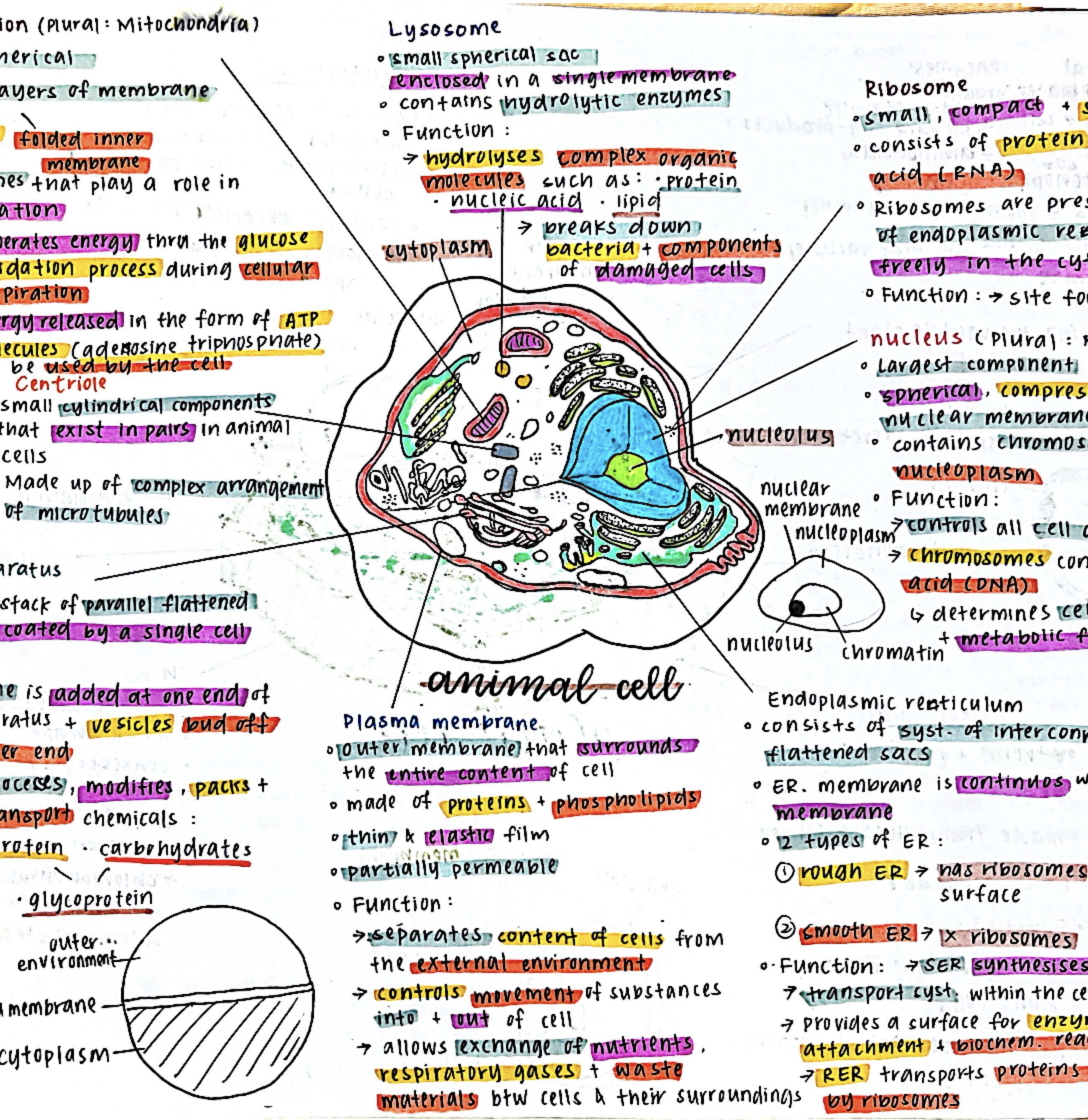 ion (Plural: Mitochondria)
herical
ayers of membrane
folded inner
membrane
mes that play a role in
ation
nerates energy thru the glucose
idation process during cellular
piration
rgy released in the form of ATP
lecules (adenosine triphosphate)
be used by the cell
Centriole
small cylindrical components
that exist in pairs in animal
cells
Made up of complex arrangement
of microtubules
aratus
stack of parallel flattened
coated by a single cell
ne is added at one end of
ratus + vesicles bud off
er end
ocesses, modifies, packs +
ansport chemicals:
rotein · carbohydrates
· glycoprotein
outer
environment
membrane
cytoplasm
Lysosome
° small spherical sac
enclosed in a single membrane
° contains hydrolytic enzymes
° Function:
→ hydrolyses complex organic
molecules such as: · protein
· nucleic acid · lipid
→ breaks down
bacteria + components
of damaged cells
cytoplasm
nucleolus
animal cell
Plasma membrane
° outer membrane that surrounds
the entire content of cell
° made of proteins + phospholipids
° thin & elastic film
° partially permeable
° Function:
→ separates content of cells from
the external environment
→ controls movement of substances
into + out of cell
→ allows exchange of nutrients,
respiratory gases + waste
materials btw cells & their surroundings
Ribosome
° small, compact + s
° consists of protein
acid (RNA)
° Ribosomes are pres
of endoplasmic re
freely in the cyt
° Function: → site fo
nucleus (Plural: n
° Largest component
° spherical, compres
nuclear membran
° contains chromos
nucleoplasm
° Function:
→ controls all cell a
→ chromosomes con
acid (DNA)
↳ determines cel
+ metabolic f
nuclear
membrane
nucleoplasm
nucleolus
chromatin
Endoplasmic reticulum
° consists of syst. of interconn
flattened sacs
° ER. membrane is continuos w
membrane
° 2 types of ER:
① rough ER → has ribosomes
surface
② smooth ER → x ribosomes
° Function: → SER synthesises
→ transport cyst. within the ce
→ provides a surface for enzym
attachment + biochem. reac
→ RER transports proteins
by ribosomes